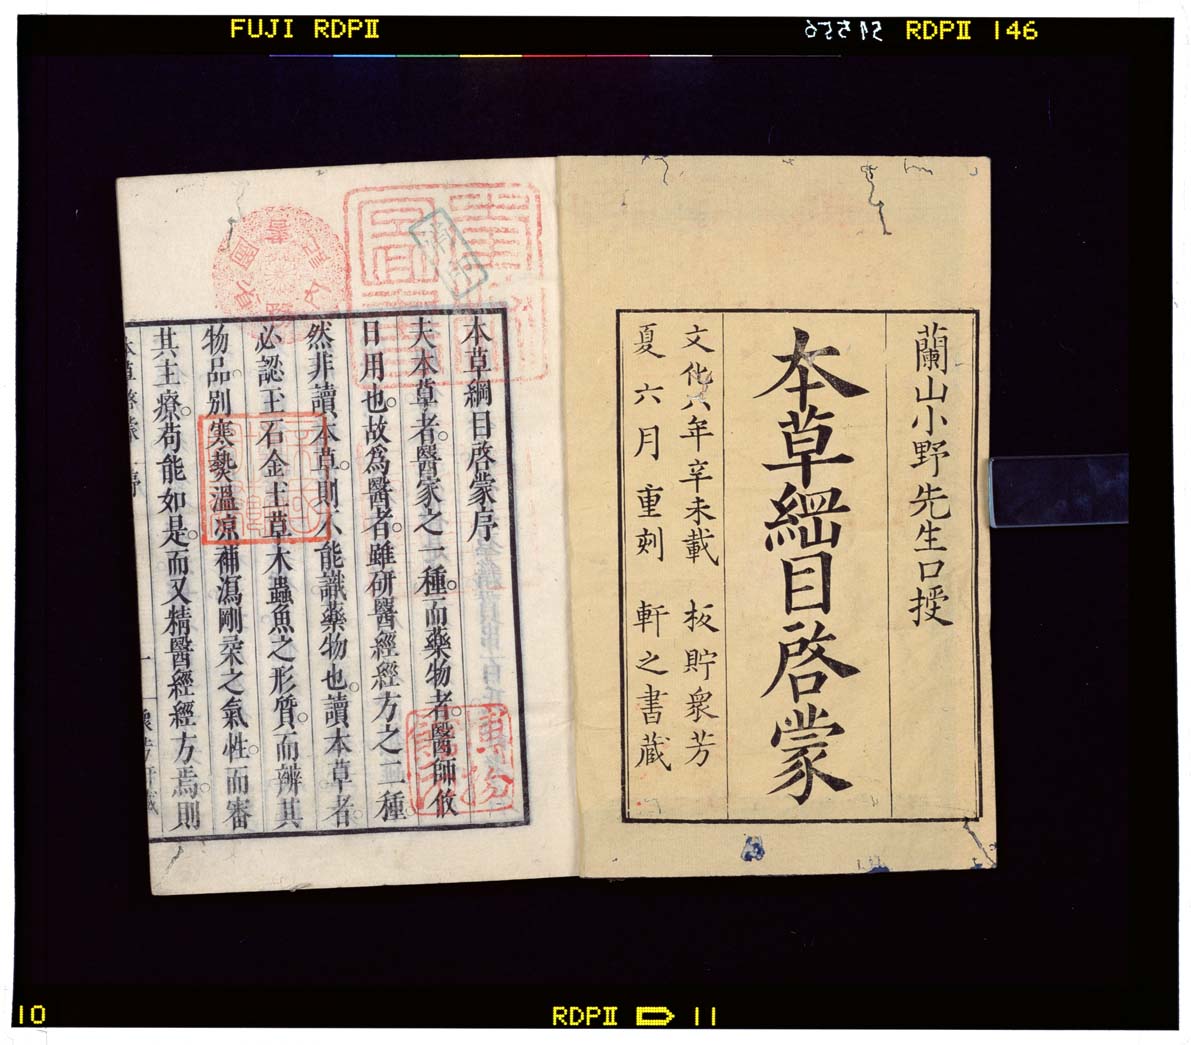 FUJI RDPⅡ
RDPⅡ 146
蘭山小野先生口授
本草綱目啓蒙
文化八年辛未載 板貯衆芳
夏六月重刻 軒之書蔵
本草綱目啓蒙序
夫本草者。醫家之一種。而藥物者。醫師攸
日用也。故爲醫者。雖研醫經經方之二種。
然非讀本草。則不能識藥物也。讀本草者。
必認玉石金土草木蟲魚之形質。而辨其
物品。別寒熱溫凉補瀉剛柔之氣性。而審
其主療。苟能如是。而又精醫經經方焉。則
10
RDPⅡ 11